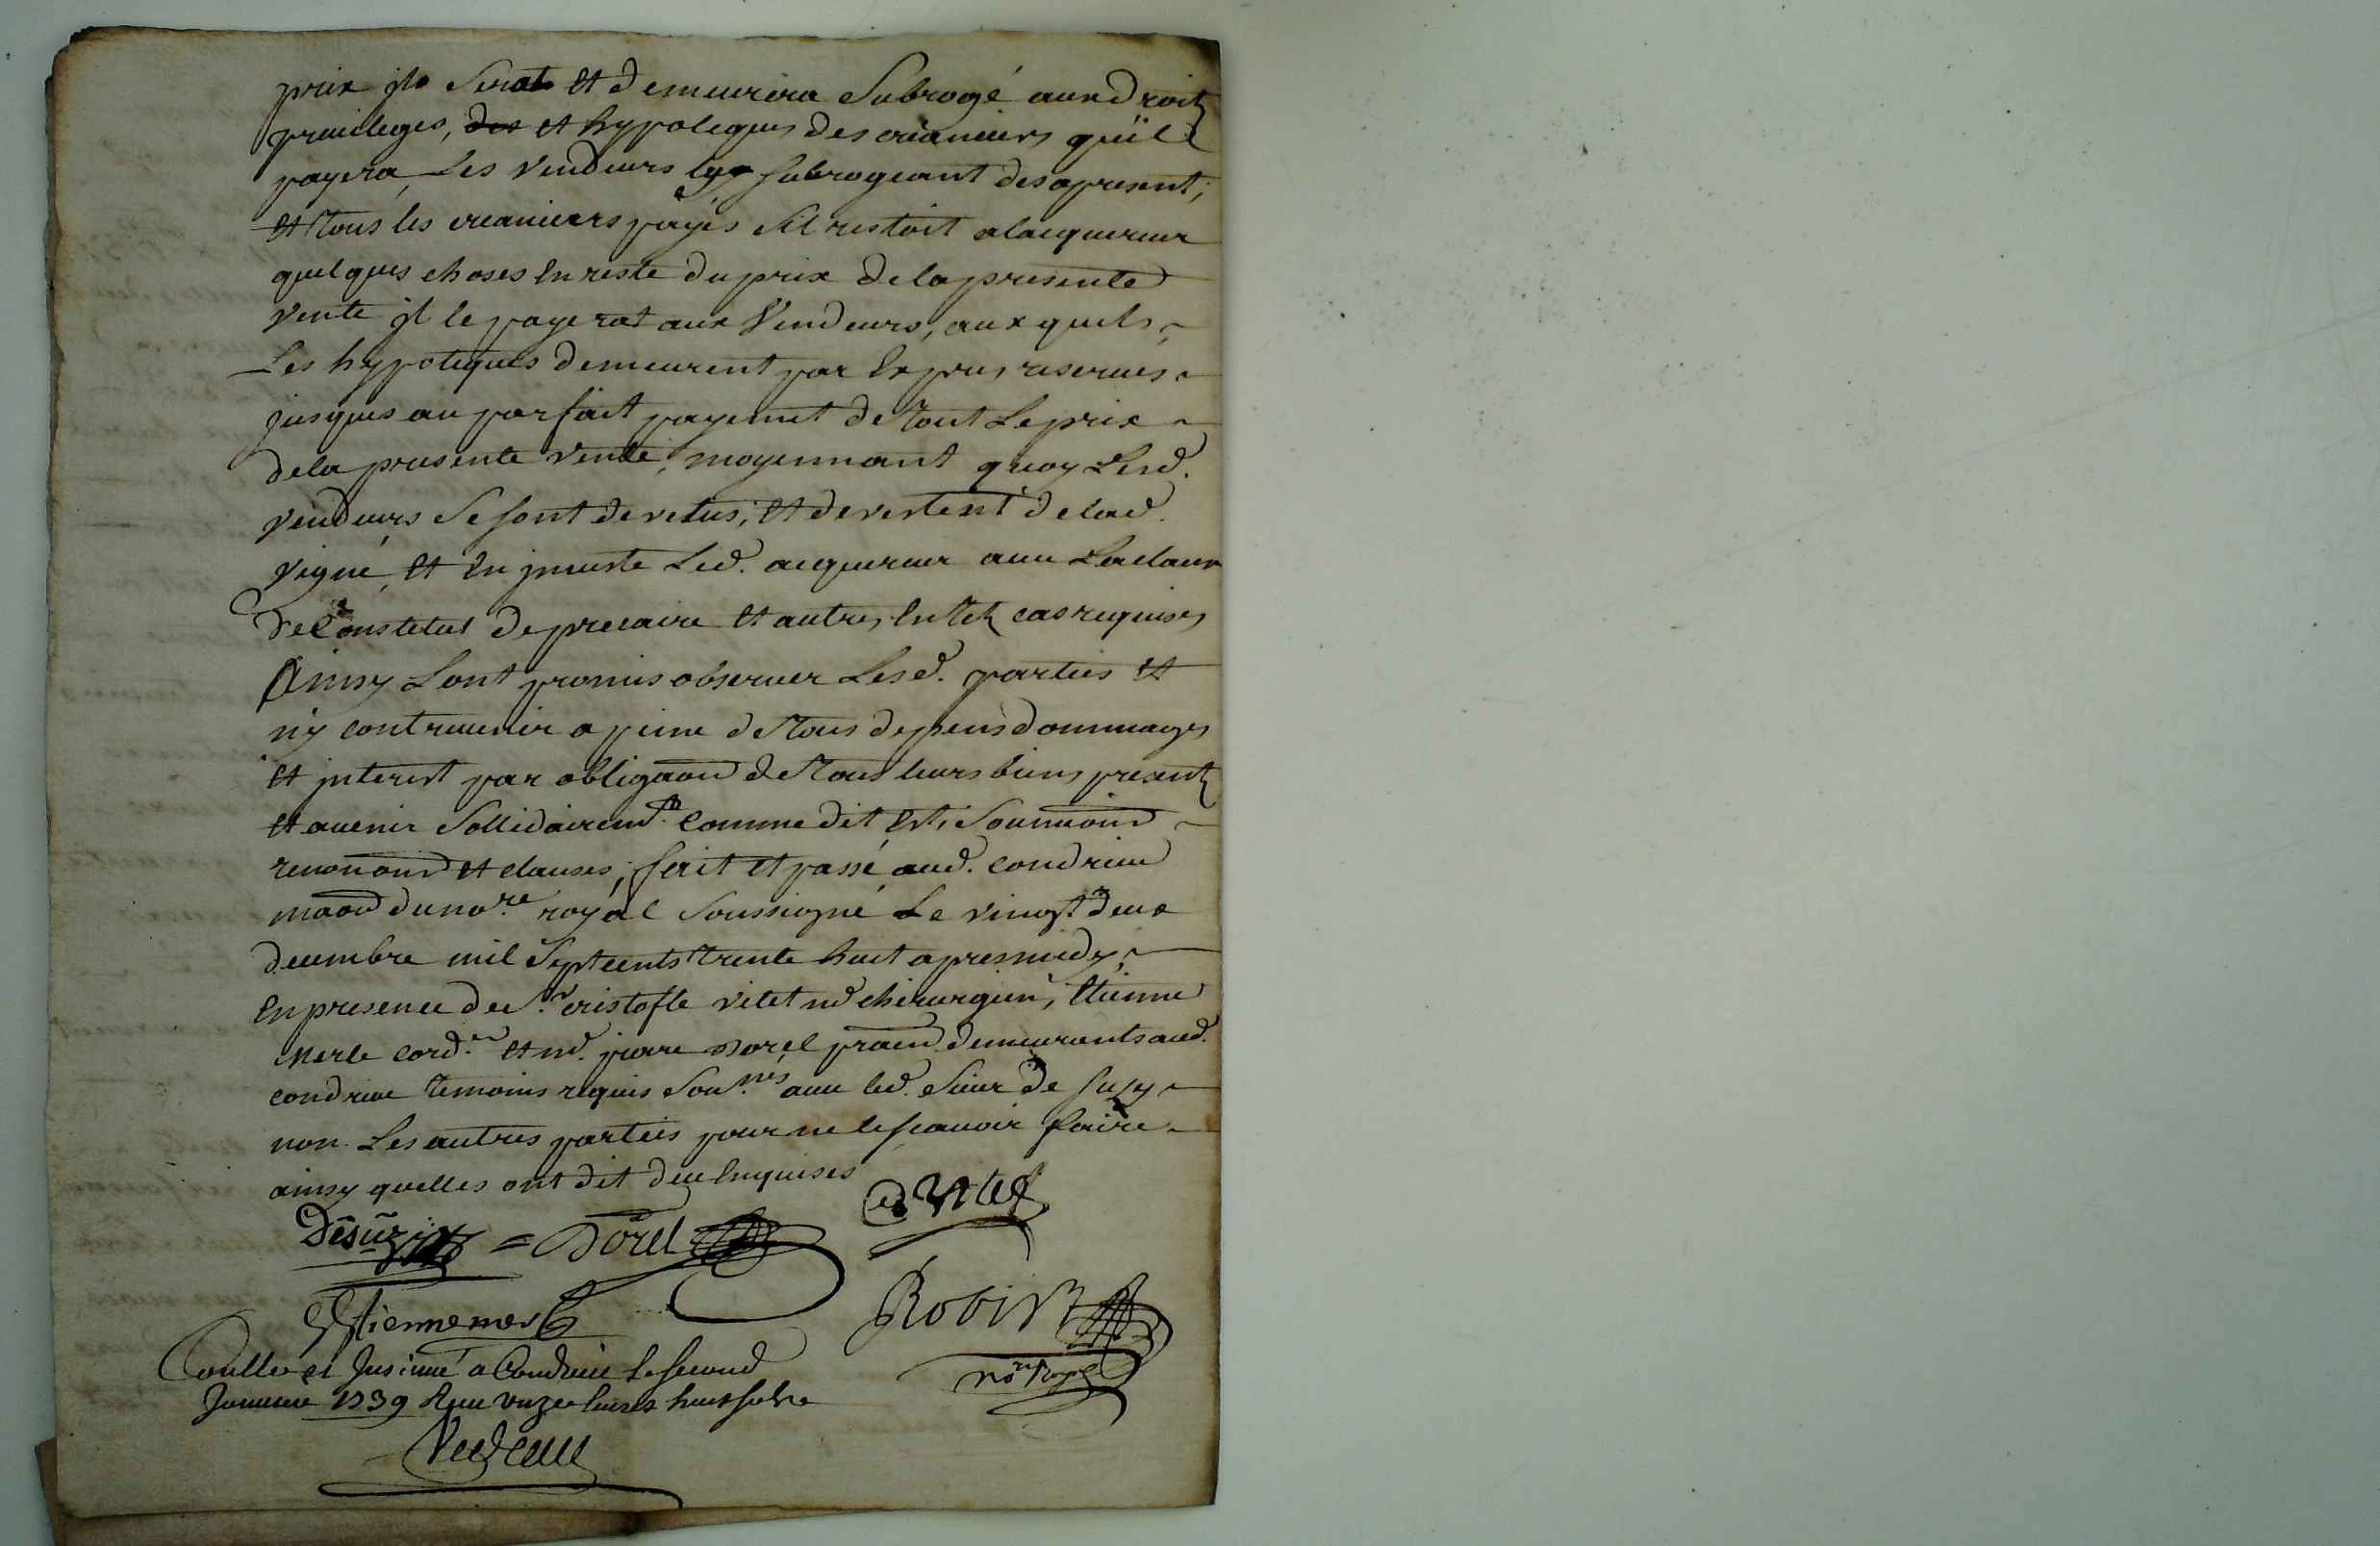 prix jl Serat et demeurera Subrogé aux droitz
priuileges, des et hypoteques des creanciers qu'il
payera, Les vendeurs ly subrogeant des apresent;
et tous les creanciers payés sil restoit a lacquereur
quelques choses en reste du prix de la presente
vente jl le payerat aux vendeurs, aux quels
Les hypoteques demeurent par expres reserués
jusques au parfait payemet de tout Le prix
de la presente vente, moyennant quoy Lesd.
vendeurs se sont devetus, et devestent de lad.
vigne, et en jnueste Led. acquereur auec La claus
de Constitut de precaire et autres en telz cas requises
Ainsy Lont promis obseruer Lesd. parties et
n'y contreuenir a peine de tous depens dommages
et jnterest par obligaon de tous leurs biens presentz
et auenir Sollidairemt. comme dit est, Soumions
renonaons et clauses, fait et passé aud. condrieu
maon du nore. royal soussigné Le vingt deux
decembre mil Sept cents trente huit apres midy,
en presence de sr. cristofle vitet md chirurgien, Etienne
Merle cord.er et md. pierre dorel praen. demeurants aud.
condrieu temoins requis sou.nés auec led. sieur de suzy
non Les autres parties pour ne le scauoir faire
ainsy quelles ont dit de ce enquises
Desuzy = Dorel
Vitet
Estienne merle
Robin
nore Royal
Conllé et Insinué a Condrieu le second
Januier 1739 Receu onze liures huit sols